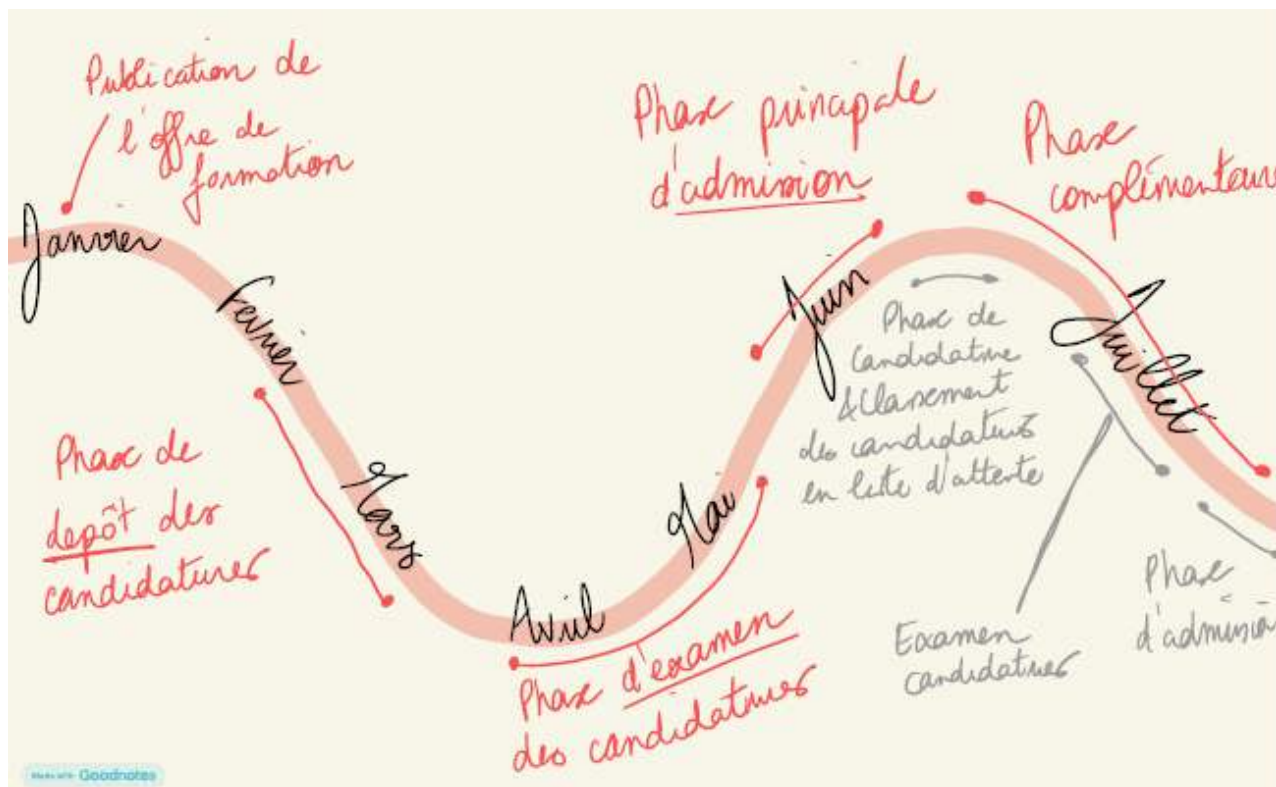 Publication de
l'offre de
formation
Janvier
Fevrier
Phase de
depôt des
candidatures
Mars
Avril
Phase d'examen
des candidatures
Mai
Phase principale
d'admission
Juin
Phase de
candidature
& Classement
des candidatures
en liste d'attente
Phase
complémentaire
Juillet
Examen
candidatures
Phase
d'admission
Made with Goodnotes